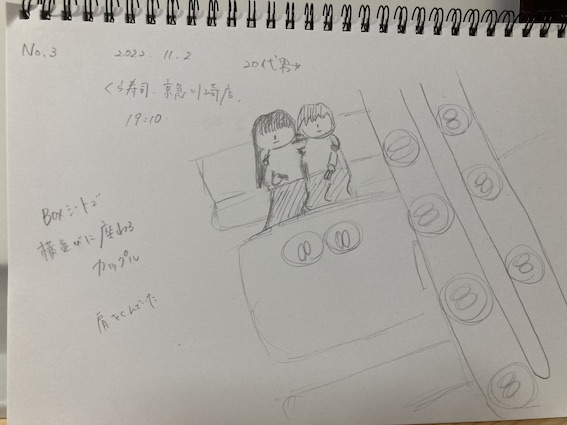 No.3 2022.11.2 20代男女
くら寿司 京急川崎店
19:10
BOXシートで
横並びに座わる
カップル
肩をくんでいた